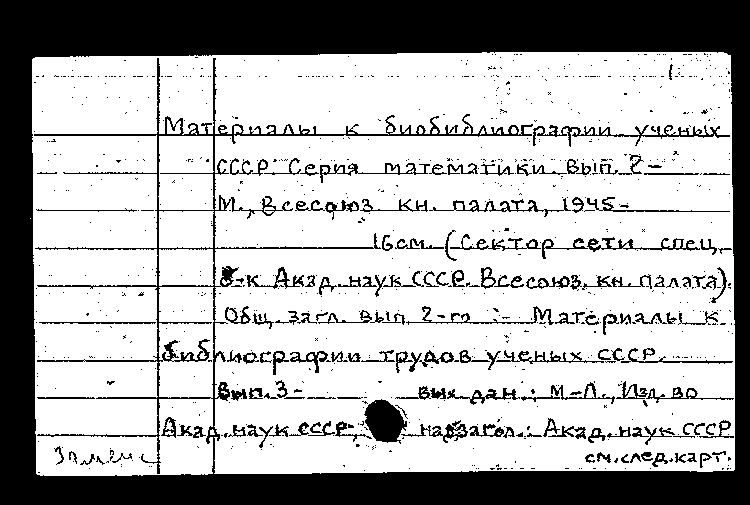 Материалы к биобиблиографии ученых
СССР. Серия математики. Вып. 2-
М., Всесоюз. кн. палата, 1945-
16см. (Сектор сети спец.
б-к Акад. наук СССР. Всесоюз. кн. палата).
Общ. загл. вып. 2-го :- Материалы к
библиографии трудов ученых СССР.
Вып. 3- вых. дан.: М-Л., Изд. во
Акад. наук СССР, надзагол.: Акад. наук СССР
см. след. карт.